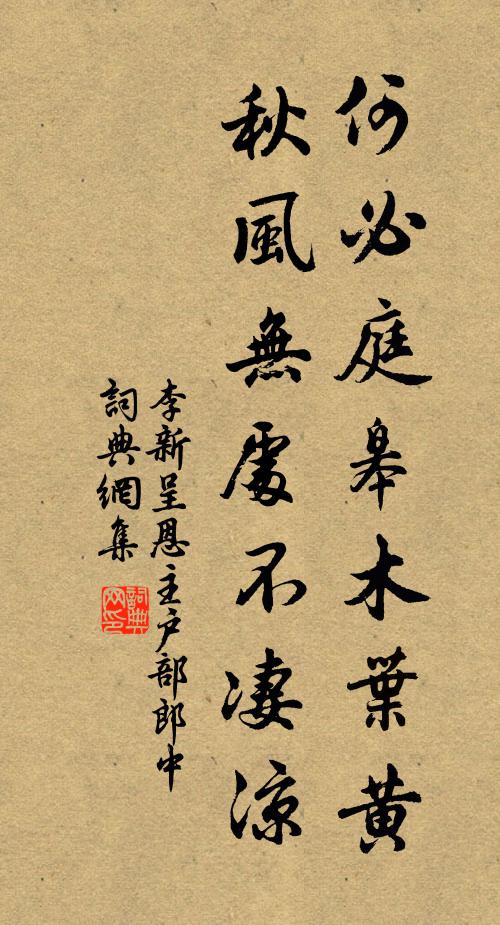 何必庭皋木葉黃
秋風無處不凄涼
李新呈恩主户部郎中
詞典網集
詞典网印